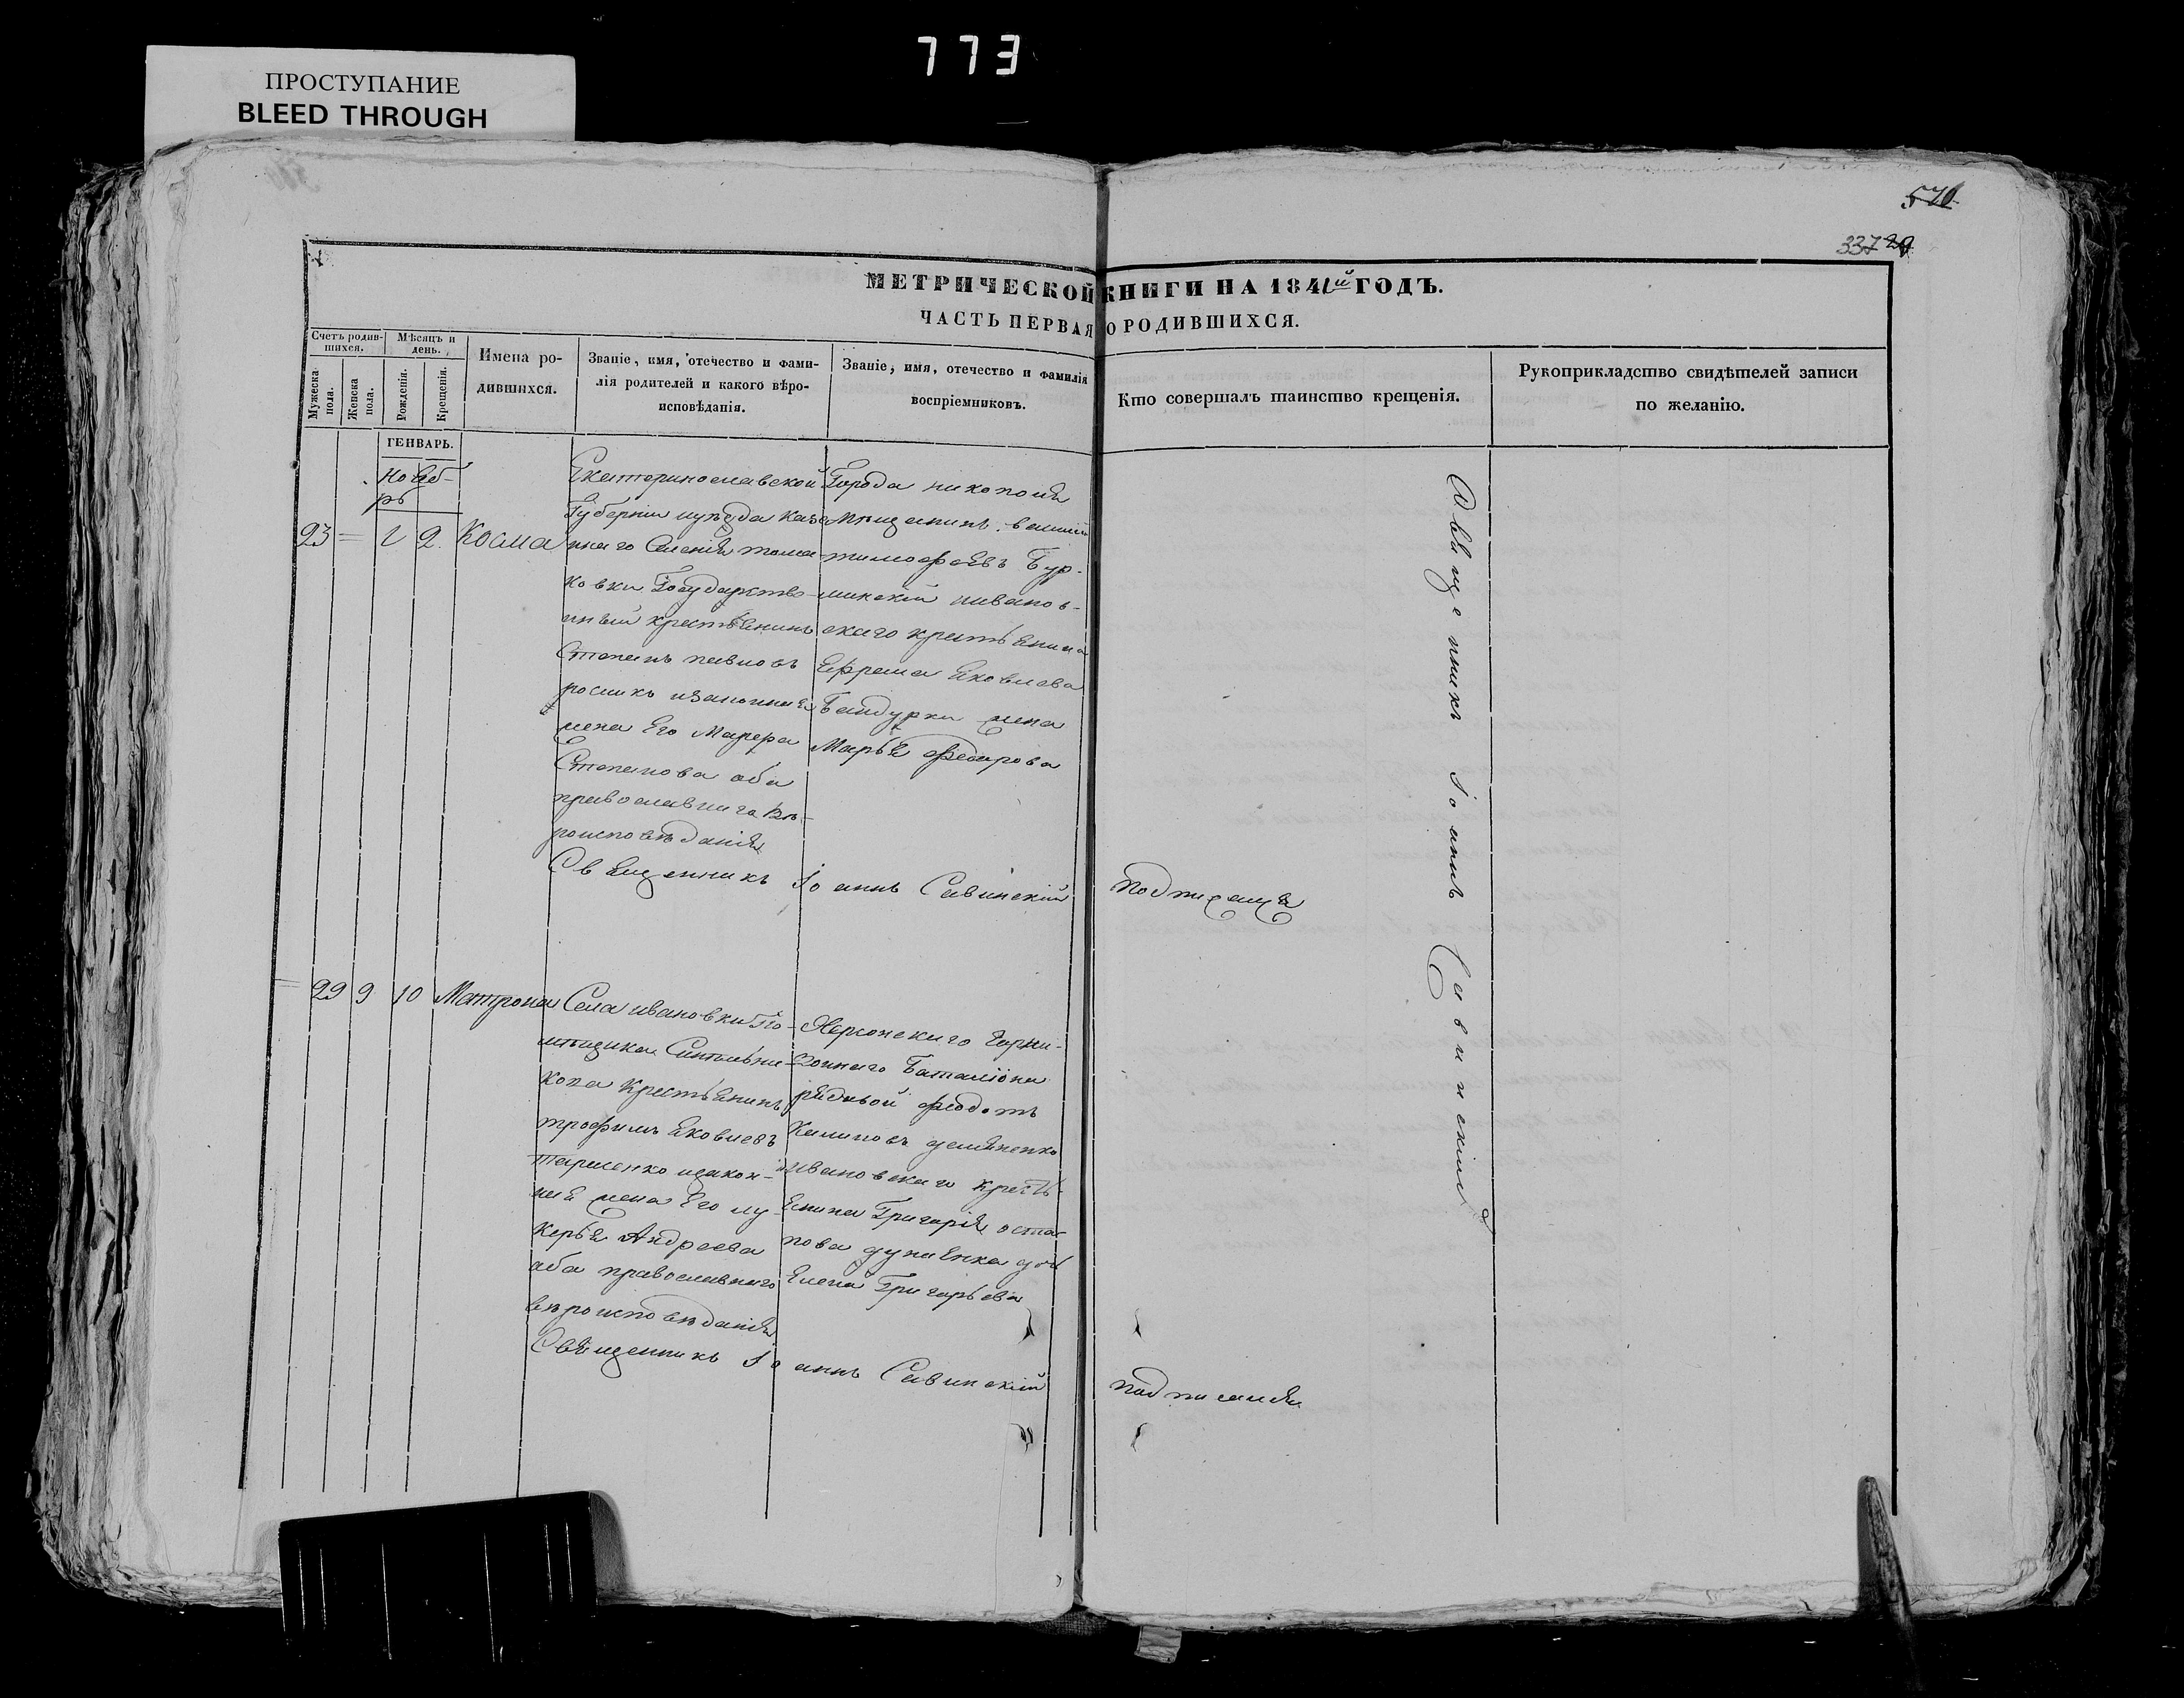 773
ПРОСТУПАНИЕ
BLEED THROUGH
570
337
МЕТРИЧЕСКОЙ КНИГИ НА 1841й ГОДЪ.
ЧАСТЬ ПЕРВАЯ О РОДИВШИХСЯ.
Счетъ родив-
шихся.
Мужеска
пола.
Женска
пола.
Мѣсяцъ и
день.
Рожденія.
Крещенія.
Имена ро-
дившихся.
Званіе, имя, отечество и фами-
лія родителей и какого вѣро-
исповѣданія.
Званіе, имя, отечество и фамилія
воспріемниковъ.
Кто совершалъ таинство крещенія.
Рукоприкладство свидѣтелей записи
по желанію.
ГЕНВАРЬ.
Ноябрь
23 = 1 2. Косма
Екатеринославской
Губерніи уѣзда Казе
ннаго Селенія тома-
ковки Государств-
нный крестьянинъ
Степанъ павловъ
законная
жена Его Марфа
Степанова оба
православнаго вѣ-
роисповѣданія
Города никополя
мѣщанинъ
тимофеевъ Бур-
минскій ивановъ-
скаго крестьянина
Ефрема Яковлева
Бандурки жена
Марья Федорова
Священникъ Іоаннъ Савинскій подписался
= 29 9 10 Матрона
Села ивановки По-
мѣщика Синельни-
кова Крестьянинъ
трофимъ Яковлевъ
Тарасенко изакон-
ная жена Его лу-
керья Андреева
оба православнаго
вѣроисповѣданія
Херсонскаго Гарни-
зоннаго Баталіона
рядовой Феодотъ
Калиновъ демяненко
ивановскаго Кресть-
янина Григорія оста-
пова дочь
Елена Григорьева
Священникъ Іоаннъ Савинскій подписался
Священникъ Іоаннъ Савинскій